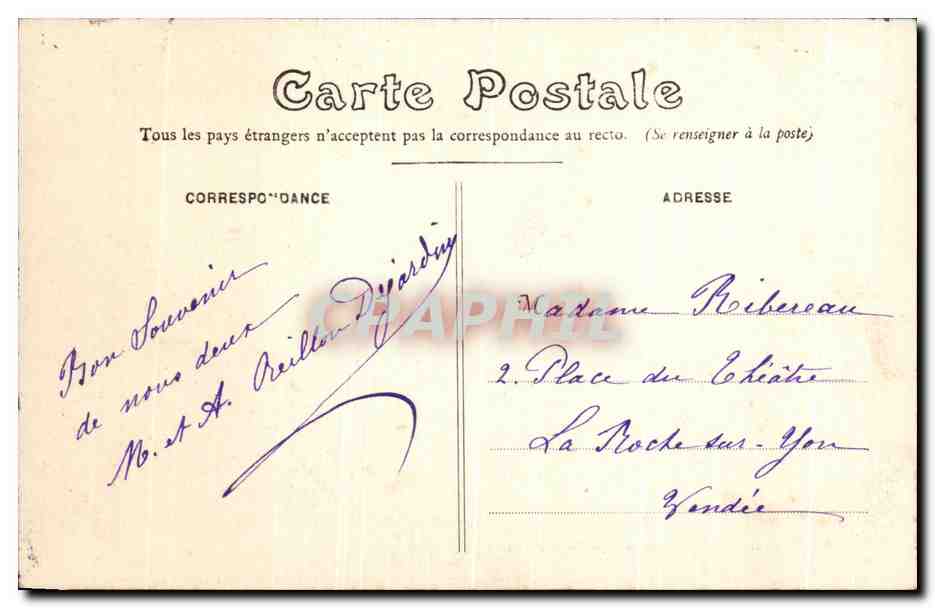 Carte Postale
Tous les pays étrangers n'acceptent pas la correspondance au recto. (Se renseigner à la poste)
CORRESPONDANCE
Bon Souvenir
de nous deux
M. et A. Reillon Dejardin
ADRESSE
Madame Ribereau
2. Place du Théâtre
La Roche sur-Yon
Vendée
CPAPHIL